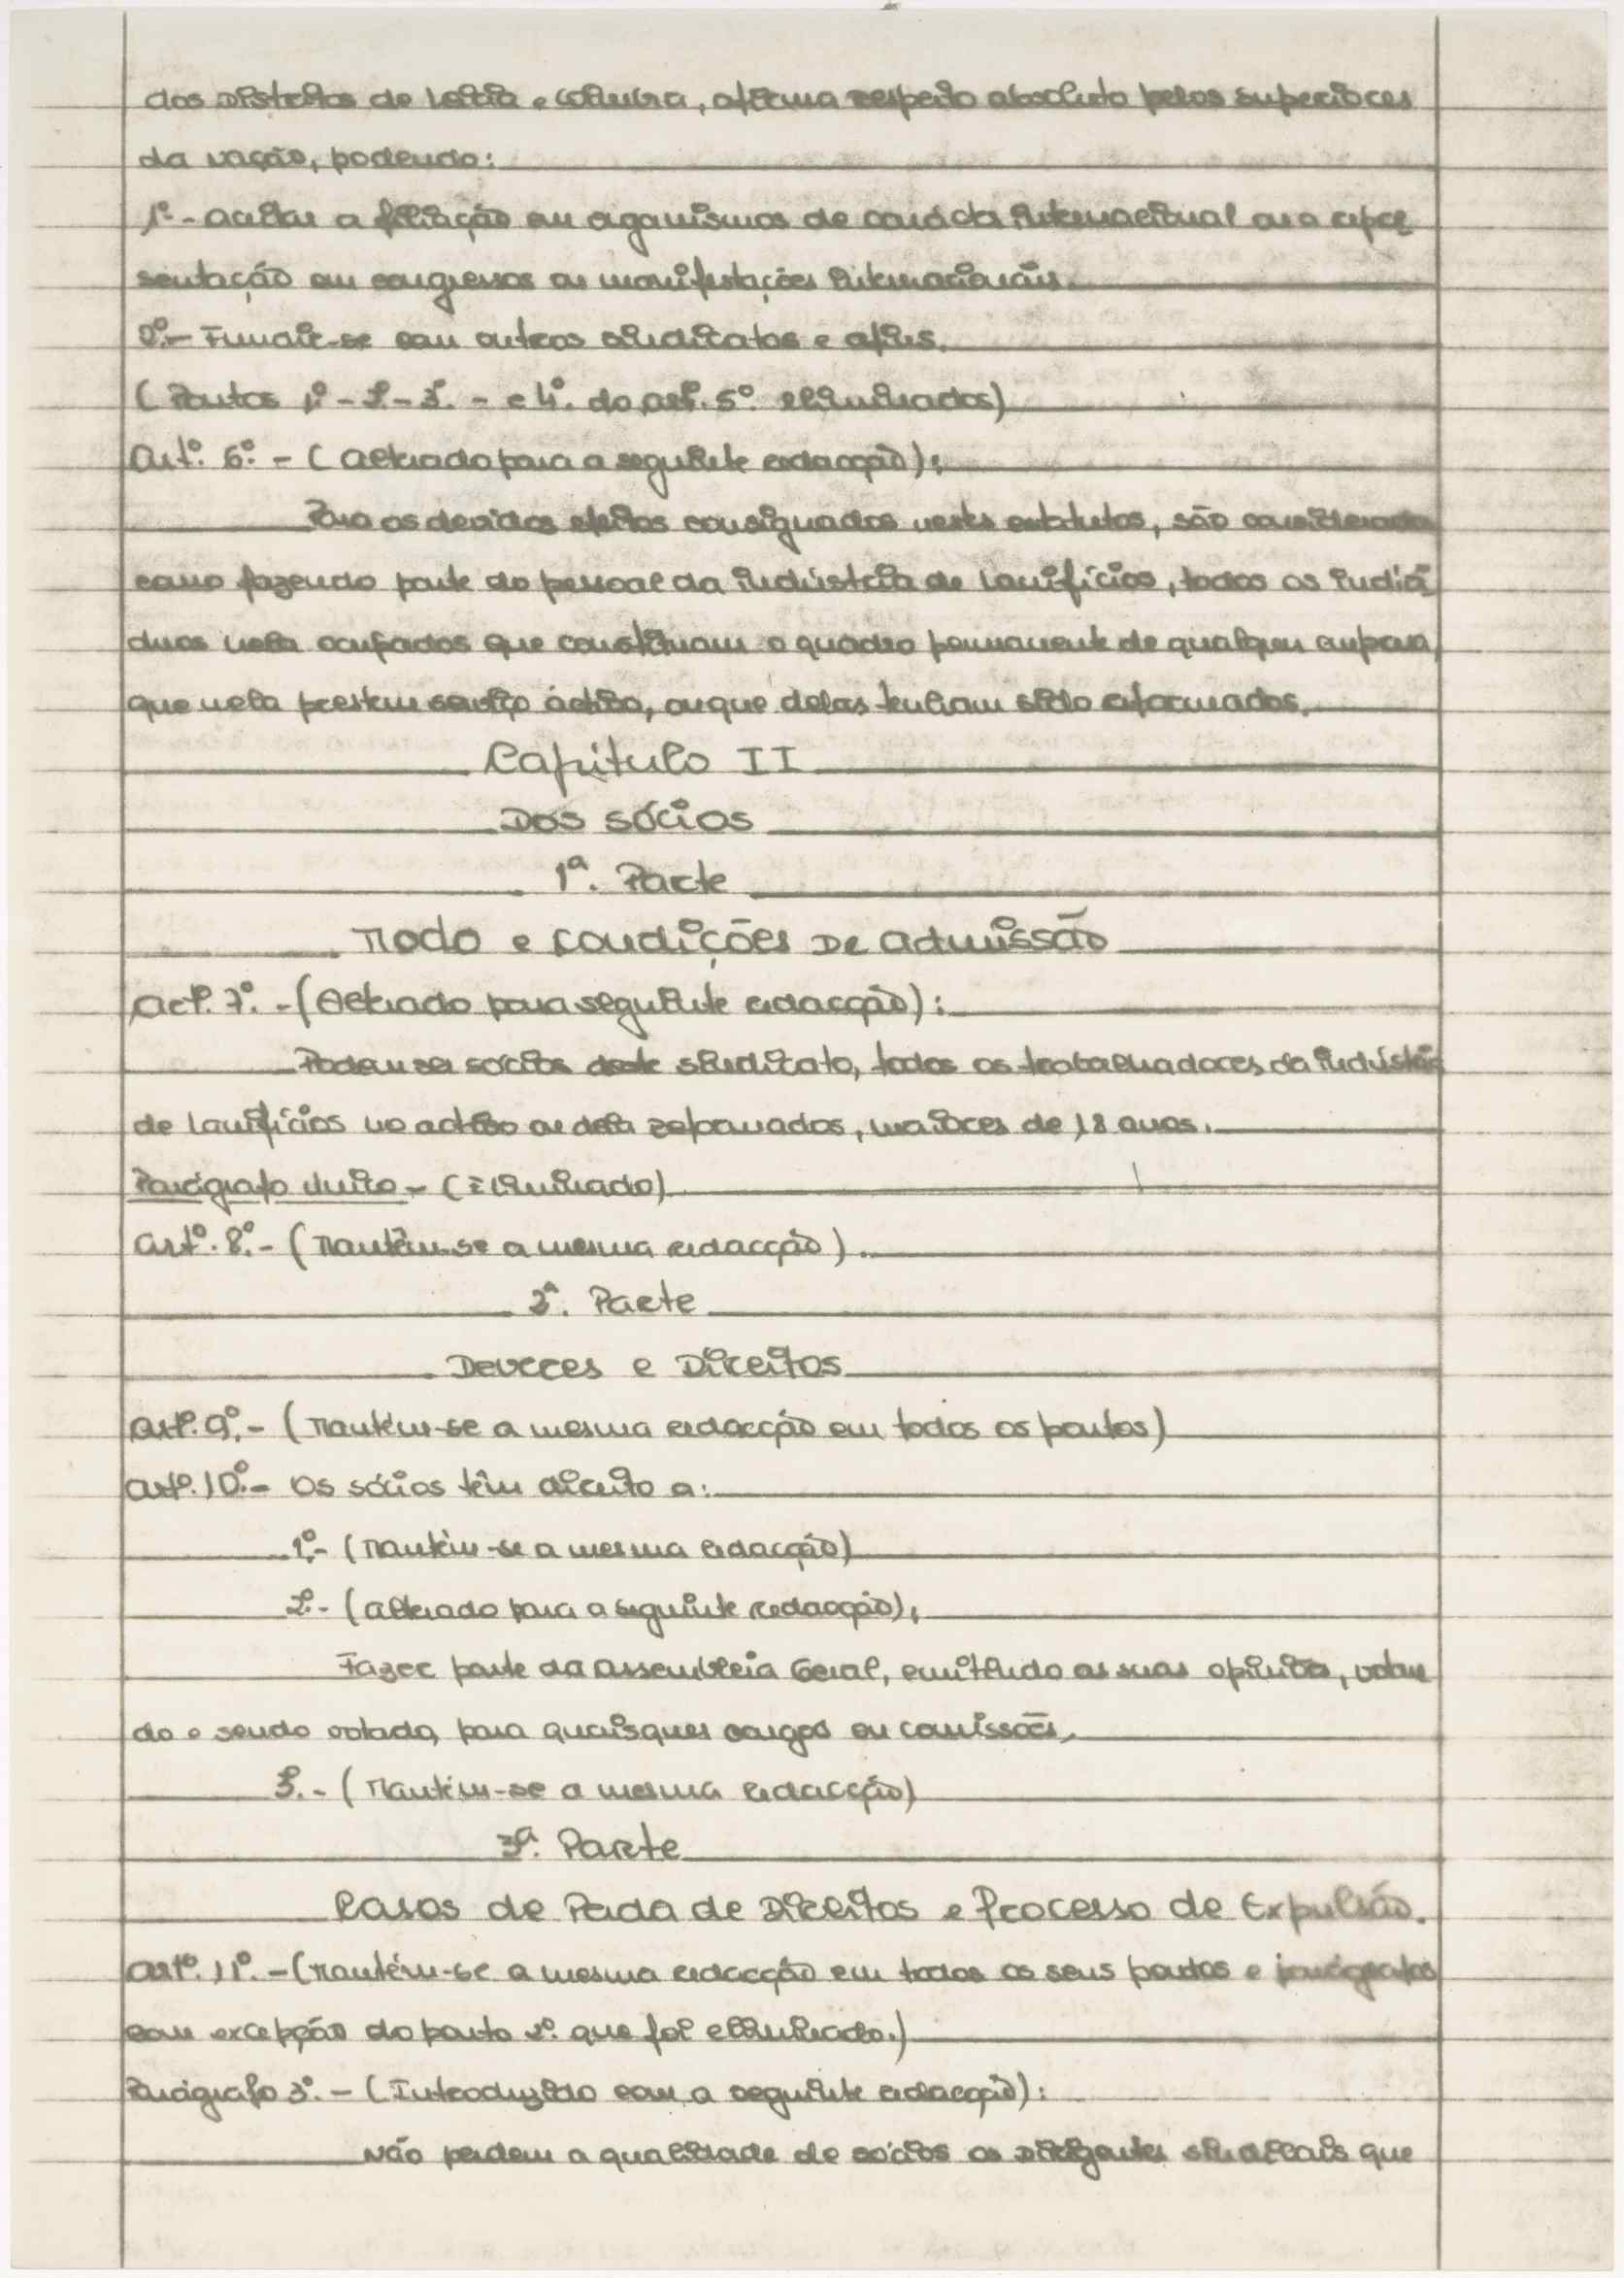 dos Distritos de Leiria e Coimbra, afirma respeito absoluto pelos superiores
da Nação, podendo:
1º - aceitar a filiação em oganismos de carácter internacional ou a repre
sentação em congressos ou manifestações internacionais.
2º - Fundir-se com outros sindicatos e afins.
(Pontos 1º - 2º - 3º. - e 4º. do artº. 5º. eliminados)
Artº. 6º. - (alterado para a seguinte redacção):
Para os devidos efeitos consignados nestes estatutos, são considerados
como fazendo parte do pessoal da indústria de Lanifícios, todos os indiví
duos nela ocupados que constituam o quadro permanente de qualquer empresa,
que nela prestem serviço activo, ou que delas tenham sido reformados.
Capítulo II
Dos sócios
1ª. Parte
Modo e condições De admissão
artº. 7º. - (Alterado para seguinte redacção):
Podem ser sócios deste sindicato, todos os trabalhadores da indústria
de Lanifícios no activo ou dela reformados, maiores de 18 anos.
Parágrafo único - (Eliminado)
artº. 8º. - (Mantêm-se a mesma redacção).
2ª. Parte
Deveres e Direitos
artº. 9º. - (Mantêm-se a mesma redacção em todos os pontos)
artº. 10º. - Os sócios têm direito a:
1º. - (Mantêm-se a mesma redacção)
2º. - (alterado para a seguinte redacção),
Fazer parte da Assembleia Geral, emitindo as suas opiniões, votan
do e sendo votado, para quaisquer cargos ou comissões.
3º. - (Mantém-se a mesma redacção)
3ª. Parte
Casos de Perda de Direitos e Processo de Expulsão.
artº. 11º. - (Mantém-se a mesma redacção em todos os seus pontos e parágrafos
com excepção do ponto 2º. que foi eliminado.)
Parágrafo 3º. - (Introduzido com a seguinte redacção):
Não perdem a qualidade de sócios os Dirigentes sindicais que